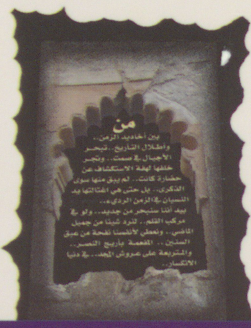 من
بين أخاديد الزمن..
وأطلال التاريخ.. تبحر
الأجيال في صمت.. وتجر
خلفها لهفة الاستكشاف عن
حضارة كانت.. لم يبق منها سوى
الذكرى.. بل حتى هي اغتالتها يد
النسيان في الزمن الرديء..
بيد أننا سنبحر من جديد.. ولو في
مركب القلم.. لنرد شيئا من جميل
الماضي.. ونعطي لأنفسنا نفحة من عبق
السنين.. المفعمة بأريج النصر..
والمتربعة على عروش المجد.. في دنيا
الانكسار..